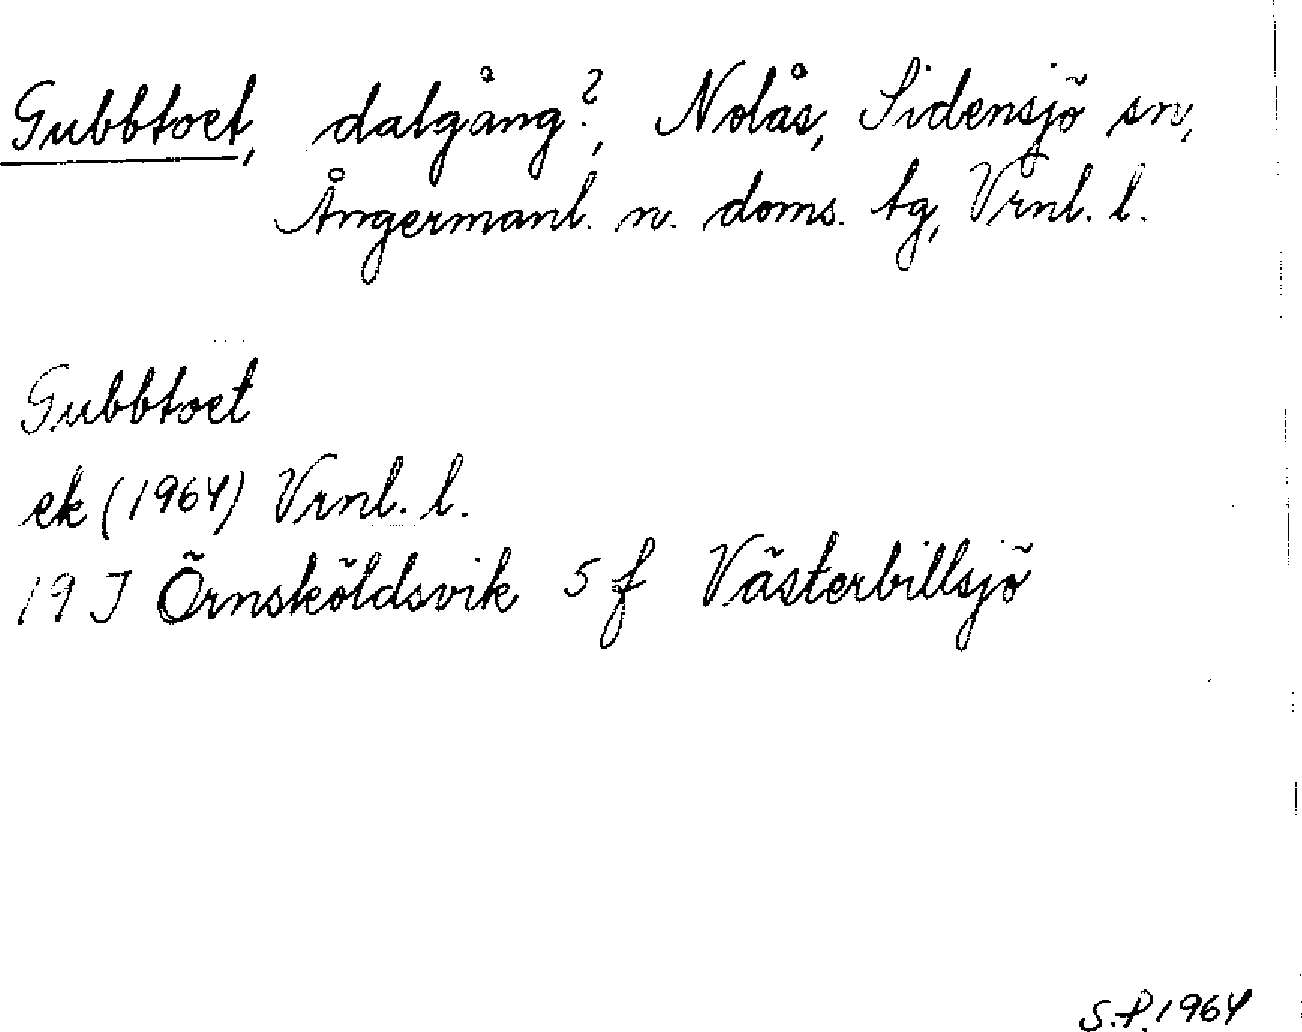 Gubbtoet, dalgång?, Nolås, Sidensjö sn,
Ångermanl. n. doms. tg, Vrnl. l.
Gubbtoet
ek (1964) Vrnl. l.
19 J Örnsköldsvik 5 f Västerbillsjö
S.P. 1964